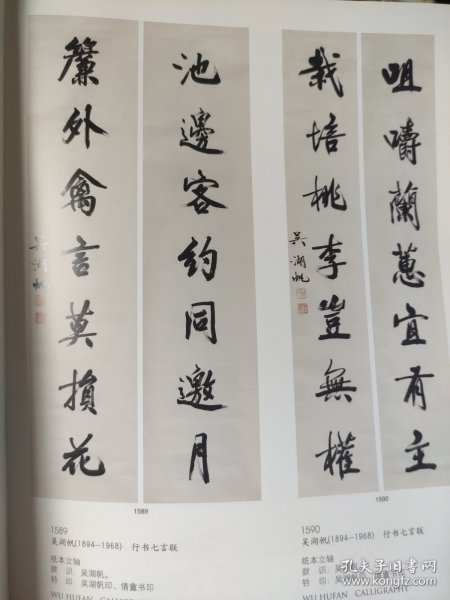 池邊客約同邀月
簾外禽言莫損花
吳湖帆
咀嚼蘭蕙宜有主
栽培桃李豈無權
吳湖帆
1589
1590
1589
吴湖帆(1894-1968) 行书七言联
纸本立轴
款 识:吴湖帆。
钤 印:吴湖帆印、倩盦书印
WU HUFAN CALLIGRAPHY
1590
吴湖帆(1894-1968) 行书七言联
纸本立轴
款 识:吴湖帆。
WU HUFAN CALLIGRAPHY
孔夫子旧书网